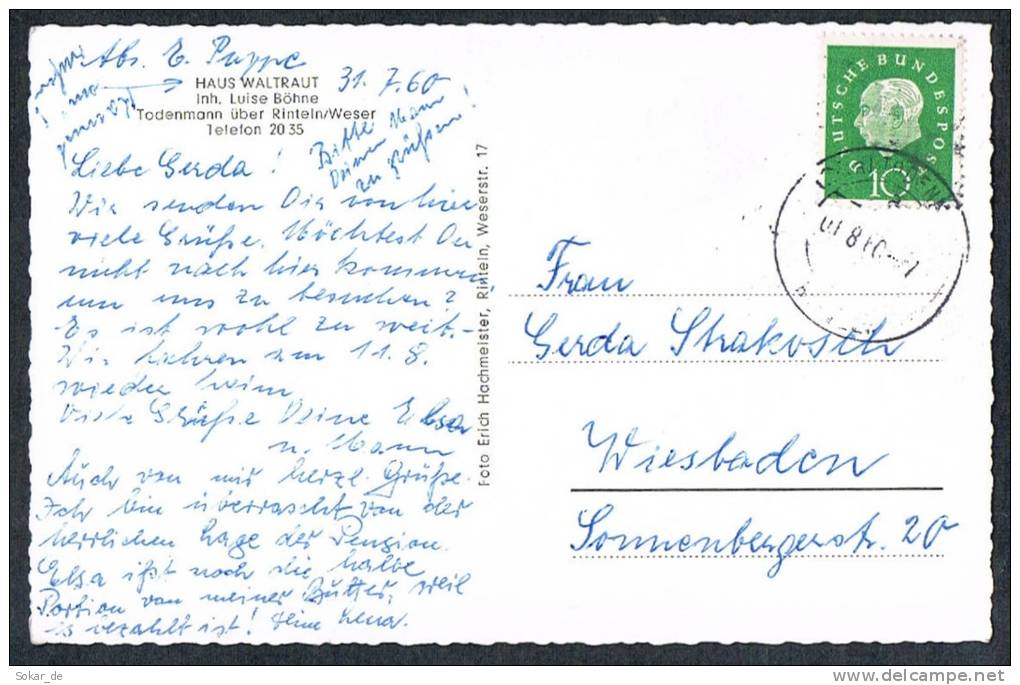 Abs. E. Puppe
31.7.60
HAUS WALTRAUT
Inh. Luise Böhne
Todenmann über Rinteln/Weser
Telefon 20 35
Bitte
Deinen Mann
zu grüßen!
Liebe Gerda!
Wir senden Dir von hier
viele Grüße. Möchtest Du
nicht nach hier kommen,
um uns zu besuchen?
Es ist wohl zu weit. -
Wir fahren am 11.8.
wieder heim.
Viele Grüße Deine Elsa
u. Mann
Auch von mir herzl. Grüße.
Ich bin überrascht von der
herrlichen Lage der Pension.
Elsa ißt noch die halbe
Portion von meiner Butter, weil
es bezahlt ist! Deine Lena.
Foto Erich Hachmeister, Rinteln, Weserstr. 17
DEUTSCHE BUNDESPOST
10
Frau
Gerda Strakosch
Wiesbaden
Sonnenbergerstr. 20
Sokar_de
delcampe.net